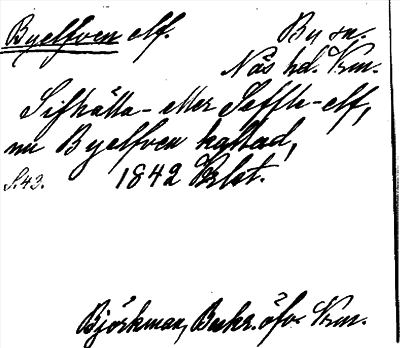 Byelfven elf. By sn.
Näs hd. Vrm.
Sifhälla- eller Seffle-elf,
nu Byelfven kallad,
S.43. 1842 Vrlst.
Björkman, Beskr. öfv. Vrm.